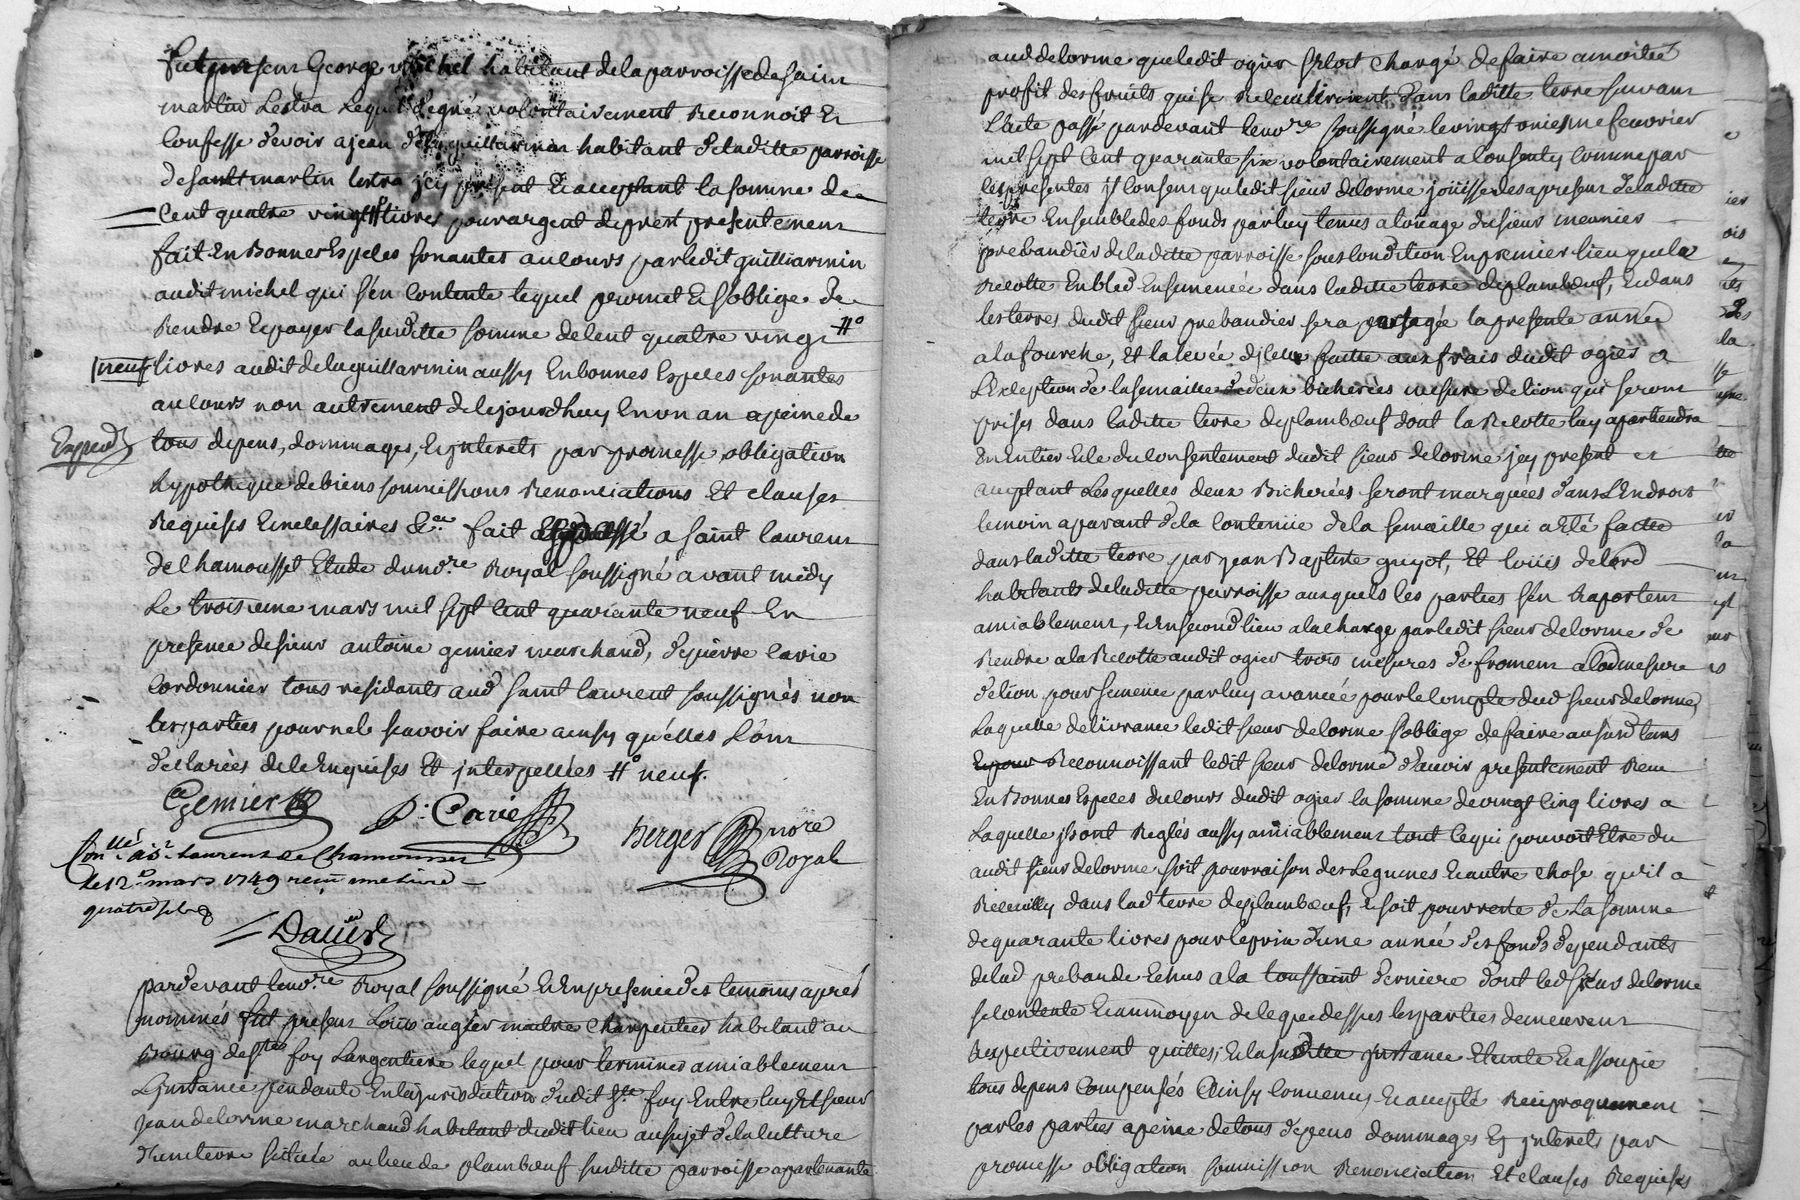 Fut present George michel habitant de la parroisse de saint
martin Lestra Lequel de gré volontairement Reconnoit Et
Confesse devoir a jean dela guillarmin habitant de laditte parroisse
de saint martin lestra jcy présent Et acceptant la somme de
Cent quatre vingt # livres pour argent de prest presentement
fait En Bonnes Especes sonantes au cours par ledit guilliarmin
audit michel qui s'en Contente lequel promet Et s'oblige de
Rendre Et payer la surditte somme de Cent quatre vingt #°
neuf livres audit delaguillarmin aussy En bonnes Especes sonantes
au cours non autrement de Cejourdhuy En un an apeine de
Exped
tous depens, dommages, Et jnterets par promesse obligation
hypotheque de biens soumissions Renonciations Et clauses
Requises Et necessaires &ca fait Et passé a saint laurent
de Chamousset Etude du nore Royal soussigné avant midy
Le troisieme mars mil sept Cent quarante neuf En
presence de sieur antoine gemier marchand, de pierre Carie
Cordonnier tous residants aud saint laurent soussignés non
les parties pour ne le scavoir faire ainsy qu'elles L'ont
declarées de ce Enquises Et jnterpellées #° neuf.
Gemier
P. Carie
Berger nore
Royal
Conllé a St Laurens de Chamousset
le 12e mars 1749 reçu
quatre sols
David
pardevant le nore Royal soussigné Et En presence des temoins aprés
nommés fut present Louis augier maitre Charpentier habitant au
Bourg de Ste foy Largentiere lequel pour terminer amiablement
L'jnstance pendante En la jurisdiction dudit Ste foy Entre luy Et sieur
Jean delorme marchand habitant dudit lieu au sujet de la Culture
d'une terre située au lieu de plambœuf surditte parroisse apartenante
aud delorme que ledit ogier s'Etoit Chargé de faire a moitié
profit des fruits qui se Recueilliroient dans laditte terre suivant
L'acte passé pardevant le nore soussigné le vingt onziesme fevrier
mil sept Cent quarante six volontairement a Consenty Comme par
les presentes jl Consent que ledit sieur delorme joüisse desapresent de laditte
terre Ensemble des fonds par luy tenus a loüage du sieur meunier
prebandier de laditte parroisse sous Condition En premier lieu que la
Recolte En bled Ensemencée dans laditte terre de plambœuf, Et dans
les terres dudit sieur prebandier sera partagée la presente année
a la fourche, Et la levée d'jcelle faitte aux frais dudit ogier a
L'Exception de la semaille de deux bicherées mesure de lion qui seront
prises dans laditte terre de plambœuf dont la Recolte luy apartiendra
En Entier Et le du Consentement dudit sieur delorme jcy present Et
acceptant Lesquelles deux Bicherées seront marquées dans L'Endroit
le moin aparant de la Contenüe de la semaille qui a Eté faitte
dans laditte terre par jean Baptiste guyot, Et loüis delord
habitants de laditte parroisse auxquels les parties s'en Raportent
amiablement, Et En second lieu a la charge par ledit sieur delorme de
Rendre a la Recolte audit ogier trois mesures de froment a lad mesure
de lion pour semence par luy avancée pour le Compte dud sieur delorme,
Laquelle delivrance ledit sieur delorme s'oblige de faire ausurd tems
Reconnoissant ledit sieur delorme d'avoir presentement Reçu
En Bonnes Especes du Cours dudit ogier la somme de vingt Cinq livres a
Laquelle jls ont Reglés aussy amiablement tout Ce qui pouvoit Etre du
audit sieur delorme soit pour raison des Legumes Et autre Chose qu'il a
Recueilly dans lad terre de plambœuf, Et soit pour reste de La somme
de quarante livres pour le prix d'une année des fonds dependants
de lad prebande Echus a la toussaint derniere dont led sieur delorme
se Contente Et au moyen de Ce que dessus les parties demeurent
Respectivement quittes, Et la surditte jnstance Eteinte Et assoupie
tous depens Compensés Ainsy Convenu, Et accepté Reciproquement
par les parties a peine de tous depens dommages Et jnterets par
promesse obligation soumission Renonciation Et clauses Requises